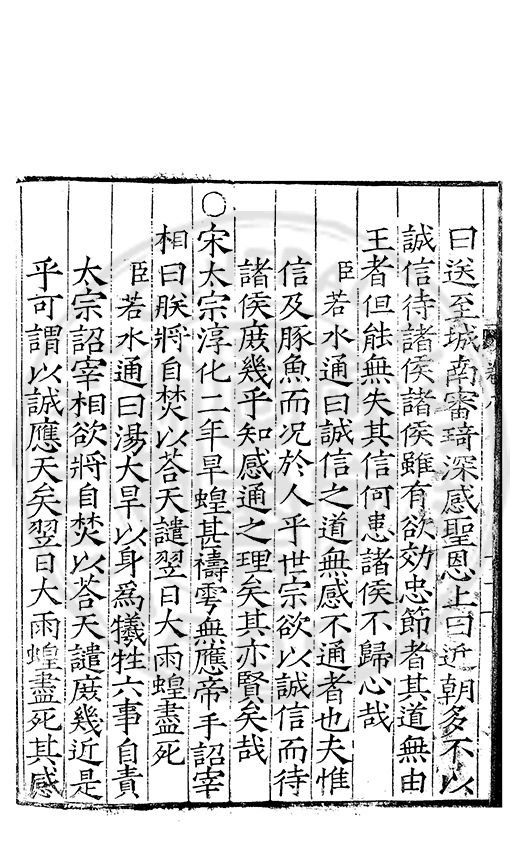 曰送至城南審琦深感聖恩上曰近朝多不以
誠信待諸侯諸侯雖有欲効忠節者其道無由
王者但能無失其信何患諸侯不歸心哉
臣若水通曰誠信之道無感不通者也夫惟
信及豚魚而况於人乎世宗欲以誠信而待
諸侯庻幾乎知感通之理矣其亦賢矣哉
○宋太宗淳化二年旱蝗甚禱雩無應帝手詔宰
相曰朕將自焚以荅天譴翌日大雨蝗盡死
臣若水通曰湯大旱以身爲犧牲六事自責
太宗詔宰相欲將自焚以荅天譴庻幾近是
乎可謂以誠應天矣翌日大雨蝗盡死其感